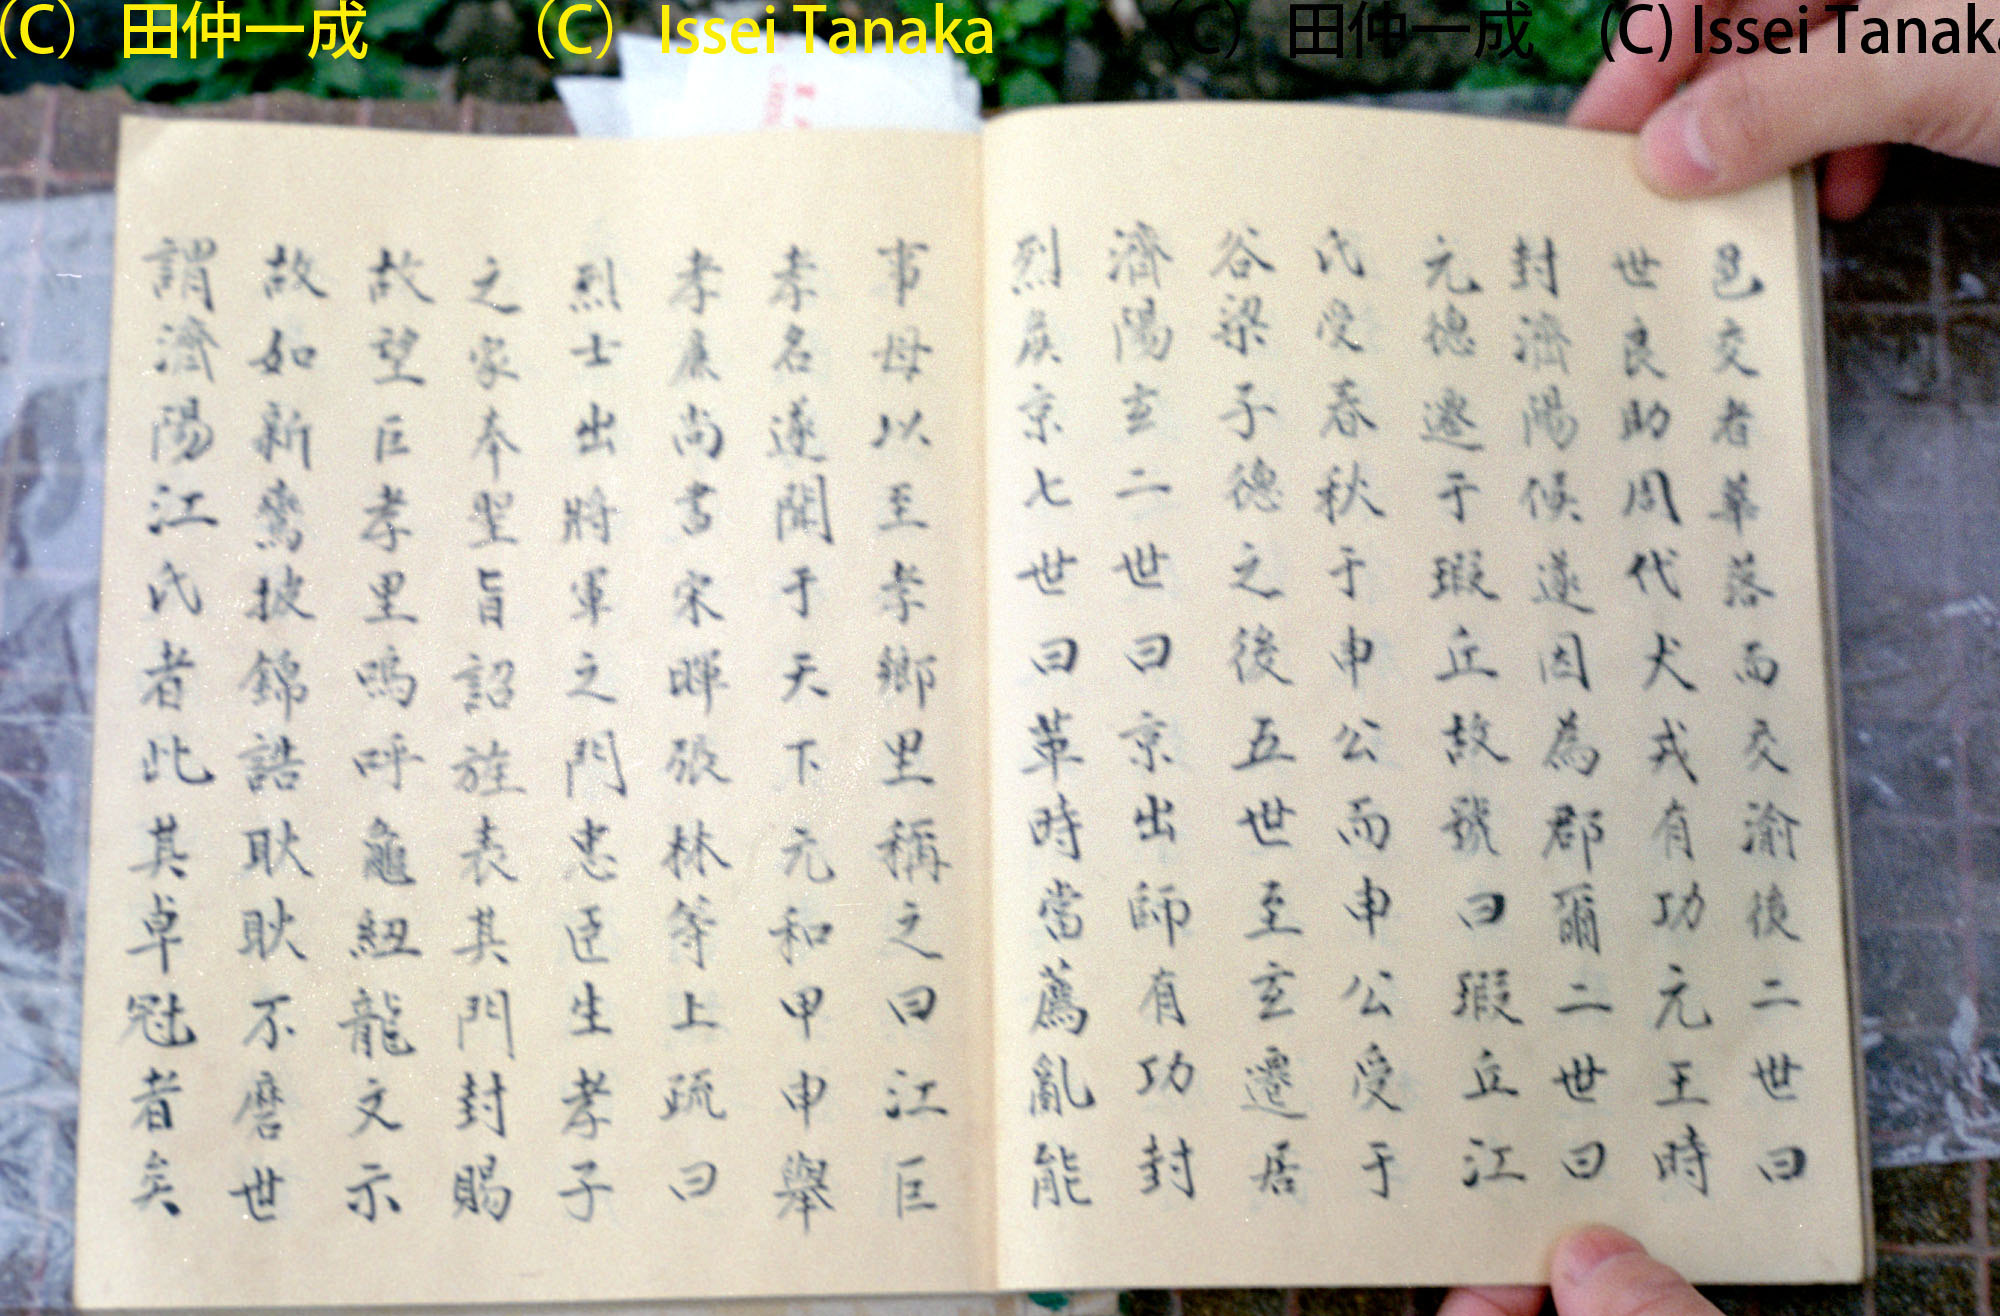 (C) 田仲一成 (C) Issei Tanaka (C) 田仲一成 (C) Issei Tanaka
邑交者華落而交渝後二世曰
世良助周代犬戎有功元王時
封濟陽候遂因為郡爾二世曰
元德遷于瑕丘故號曰瑕丘江
氏受春秋于申公而申公受于
谷梁子德之後五世至玄遷居
濟陽玄二世曰京出師有功封
烈侯京七世曰革時當薦亂能
事母以至孝鄉里稱之曰江巨
孝名遂聞于天下元和甲申舉
孝廉尚書宋暉張林等上疏曰
烈士出將軍之門忠臣生孝子
之家奉聖旨詔旌表其門封賜
故望巨孝里嗚呼龜紐龍文示
故如新鸞披錦誥耿耿不磨世
謂濟陽江氏者此其卓冠者矣